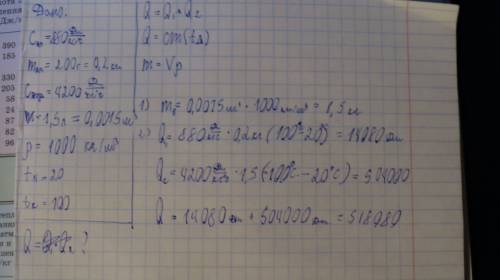 Дано:
Cал = 880 Дж/кг°C
mал = 200г = 0,2 кг
Cводы = 4200 Дж/кг°C
V = 1,5л = 0,0015 м³
ρ = 1000 кг/м³
tн = 20
tк = 100
Q = Q₁+Q₂ ?
Q = Q₁ + Q₂
Q = cm(tΔ)
m = Vρ
1) mв = 0,0015 м³ · 1000 кг/м³ = 1,5 кг
2) Q₁ = 880 Дж/кг°C · 0,2 кг (100°-20°) = 14080 Дж
Q₂ = 4200 Дж/кг°C · 1,5 (100°C - 20°C) = 504000
Q = 14080 Дж + 504000 Дж = 518080
390
183
330
205
58
24
87
82
96